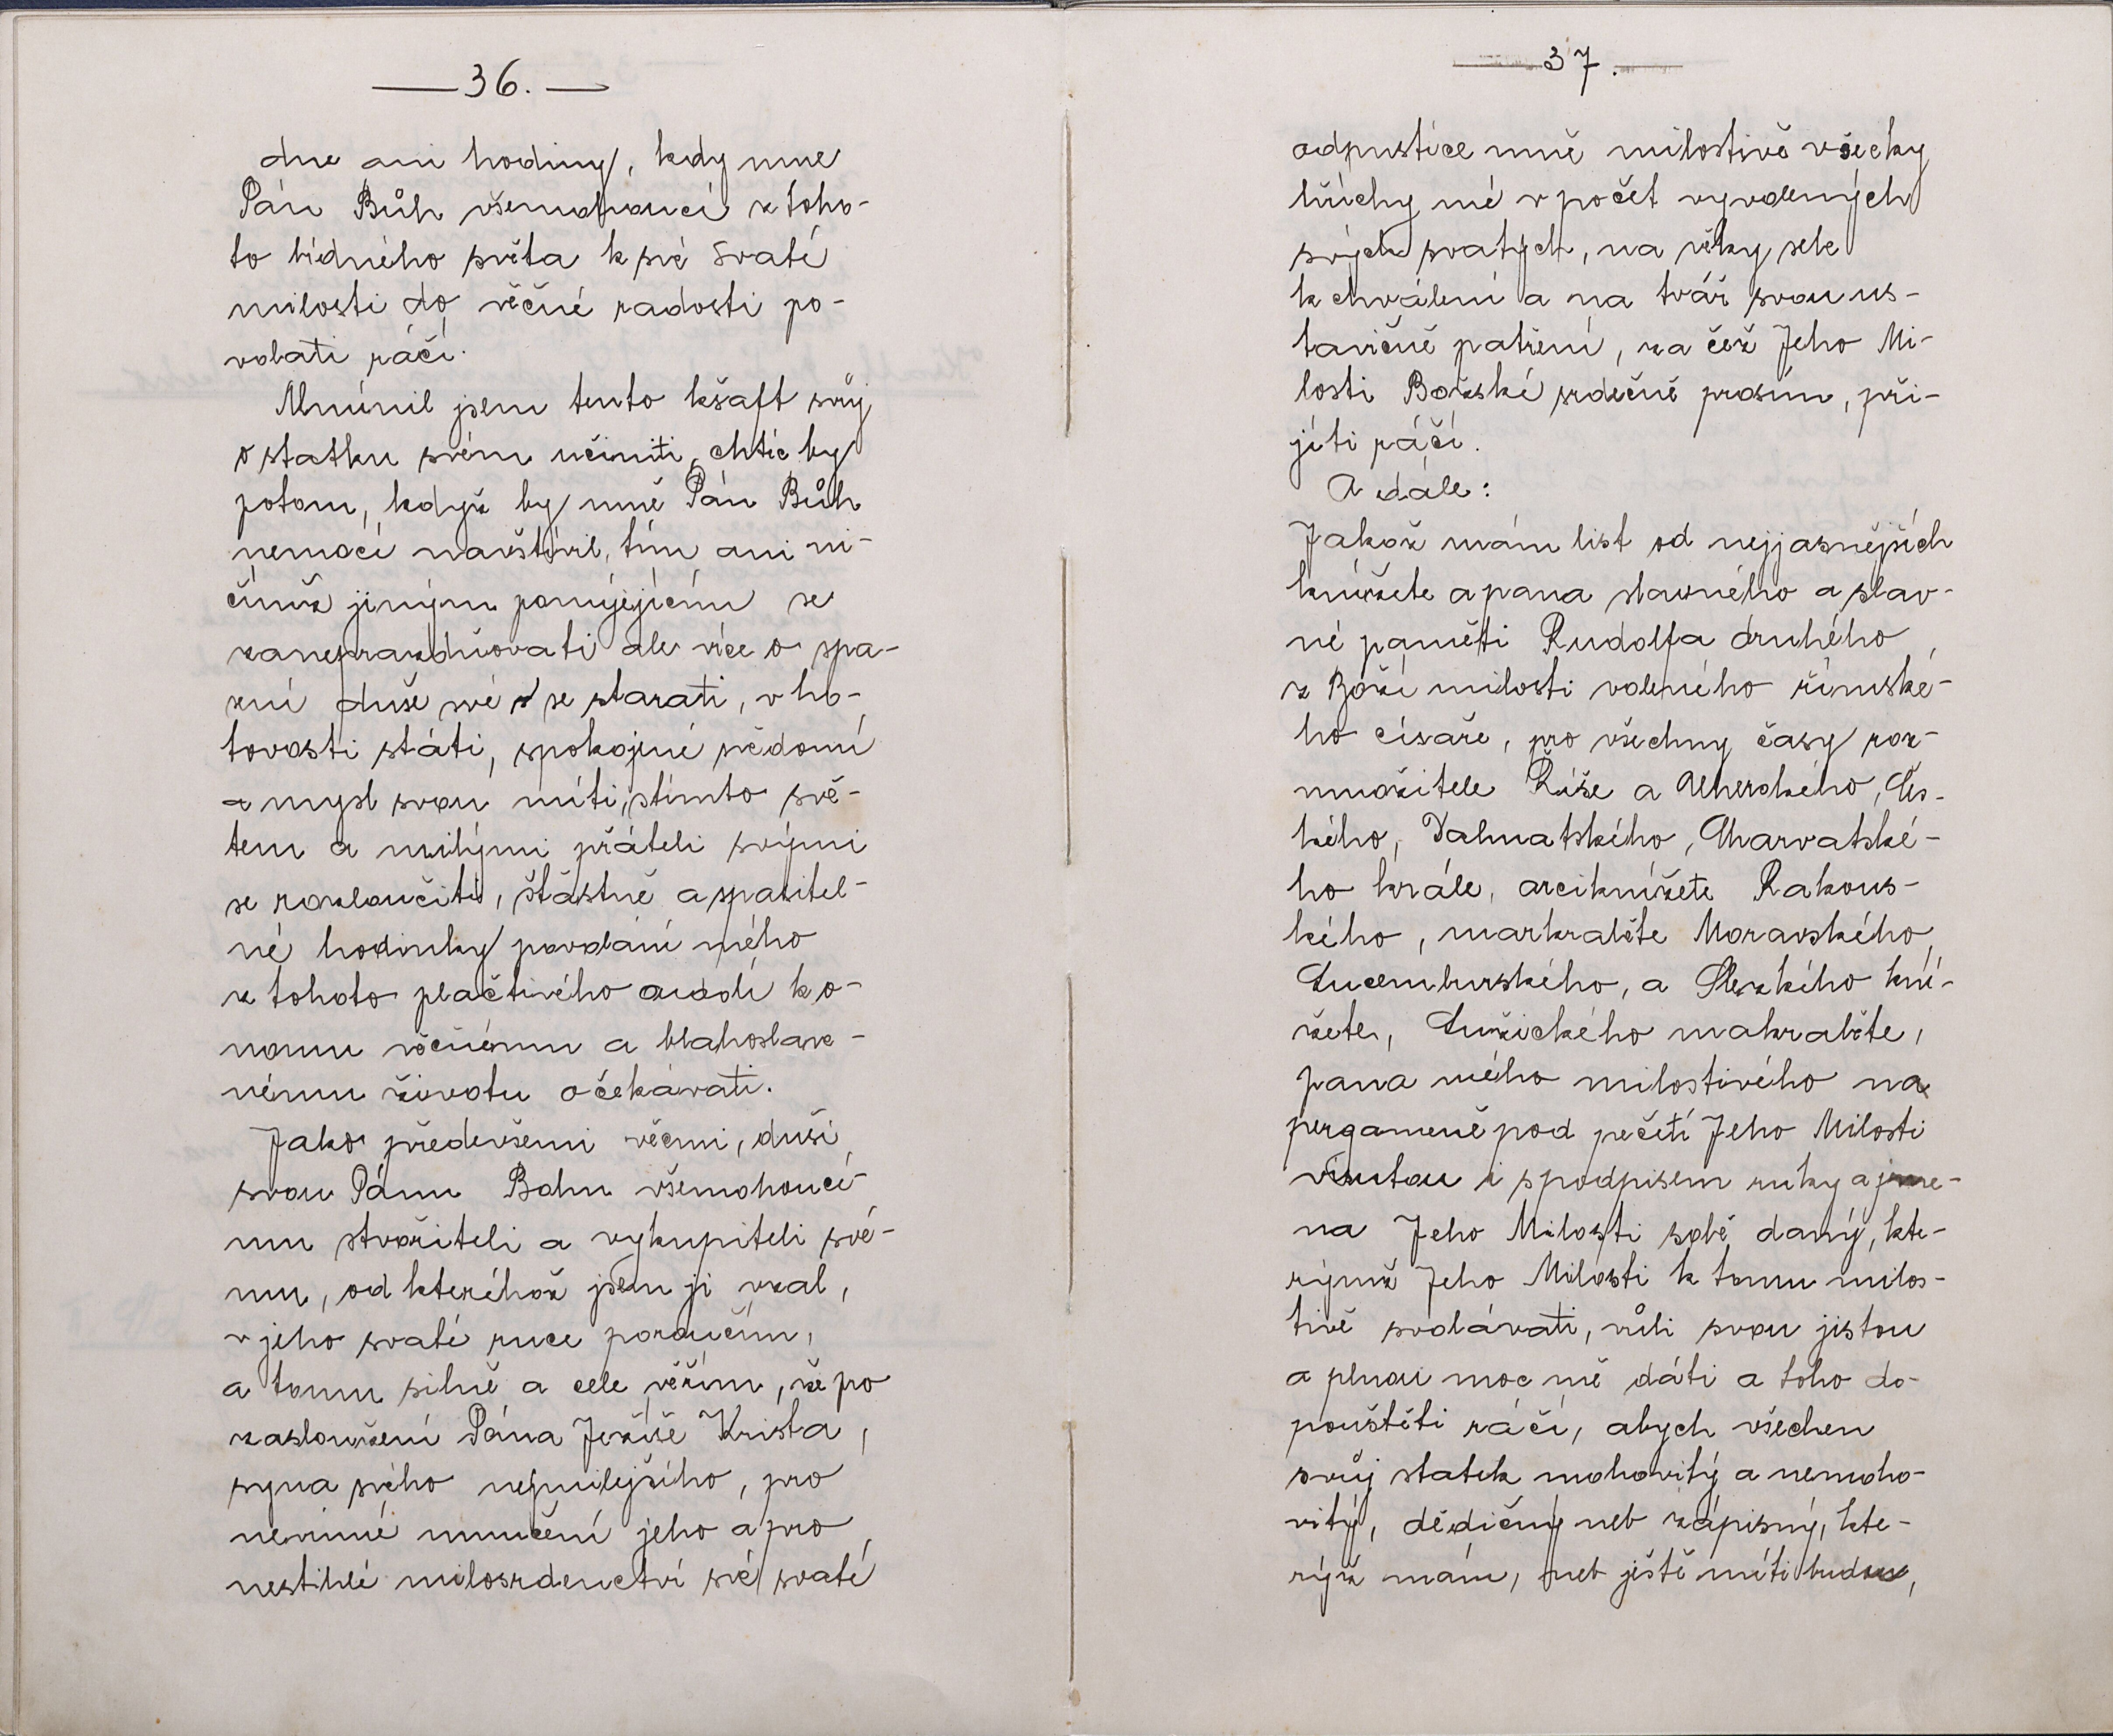 — 36. —
dne ani hodiny, kdy mne
Pán Bůh všemohoucí z toho-
to bídného světa k své svaté
milosti do věčné radosti po-
volati ráčí.
Umínil jsem tento kšaft svůj
o statku svém učiniti, chtíc by
potom, když by mně Pán Bůh
nemocí navštívil, tím ani ni-
čímž jiným pomíjejícím se
zaneprazdňovati ale více o spa-
sení duše své se starati, v ho-
tovosti státi, spokojené svědomí
a mysl svou míti, s tímto svě-
tem a milými přáteli svými
se rozloučiti, šťastně a spasitel-
né hodinky povolání mého
z tohoto plačtivého oudolí k o-
nomu věčnému a blahoslave-
nému životu očekávati.
Jako předevšemi věcmi, duši
svou Pánu Bohu všemohoucí-
mu stvořiteli a vykupiteli své-
mu, od kteréhož jsem ji vzal,
v jeho svaté ruce poroučím,
a tomu silně a cele věřím, že po
zasloužení Pána Ježíše Krista,
syna svého nejmilejšího, pro
nevinné umučení jeho a pro
nestihlé milosrdenctví své svaté
— 37. —
odpustíce mně milostivě všecky
hříchy mé v počet vyvolených
svých svatých, na věky sebe
k chválení a na tvář svou us-
tavičně patření, za čež Jeho Mi-
losti Božské srdečně prosím, při-
jíti ráčí.
A dále:
Jakož mám list od nejjasnějších
knížete a pana slavného a slav-
né paměti Rudolfa druhého,
z Boží milosti voleného římské-
ho císaře, pro všechny časy roz-
množitele Říše a Uherského, Čes-
kého, Dalmatského, Charvatské-
ho krále, arciknížete Rakous-
kého, markraběte Moravského,
Lucemburského, a Slezkého kní-
žete, Lužického makraběte,
pana mého milostivého na
pergameně pod pečetí Jeho Milosti
visutou i s podpisem ruky a jme-
na Jeho Milosti sobě daný, kte-
rýmž Jeho Milosti k tomu milos-
tivě svolávati, vůli svou jistou
a plnou moc mě dáti a toho do-
pouštěti ráčí, abych všechen
svůj statek mohovitý a nemoho-
vitý, dědičný neb zápisný, kte-
rýž mám, neb ještě míti budou,